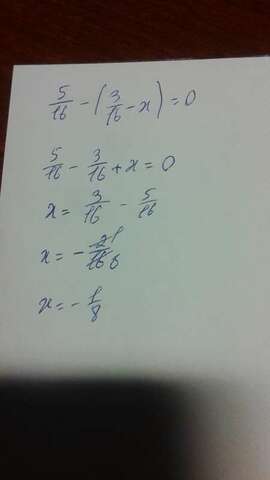 5/16 - (3/16 - x) = 0
5/16 - 3/16 + x = 0
x = 3/16 - 5/16
x = - 2̶ 1/1̶6̶ 8
x = - 1/8